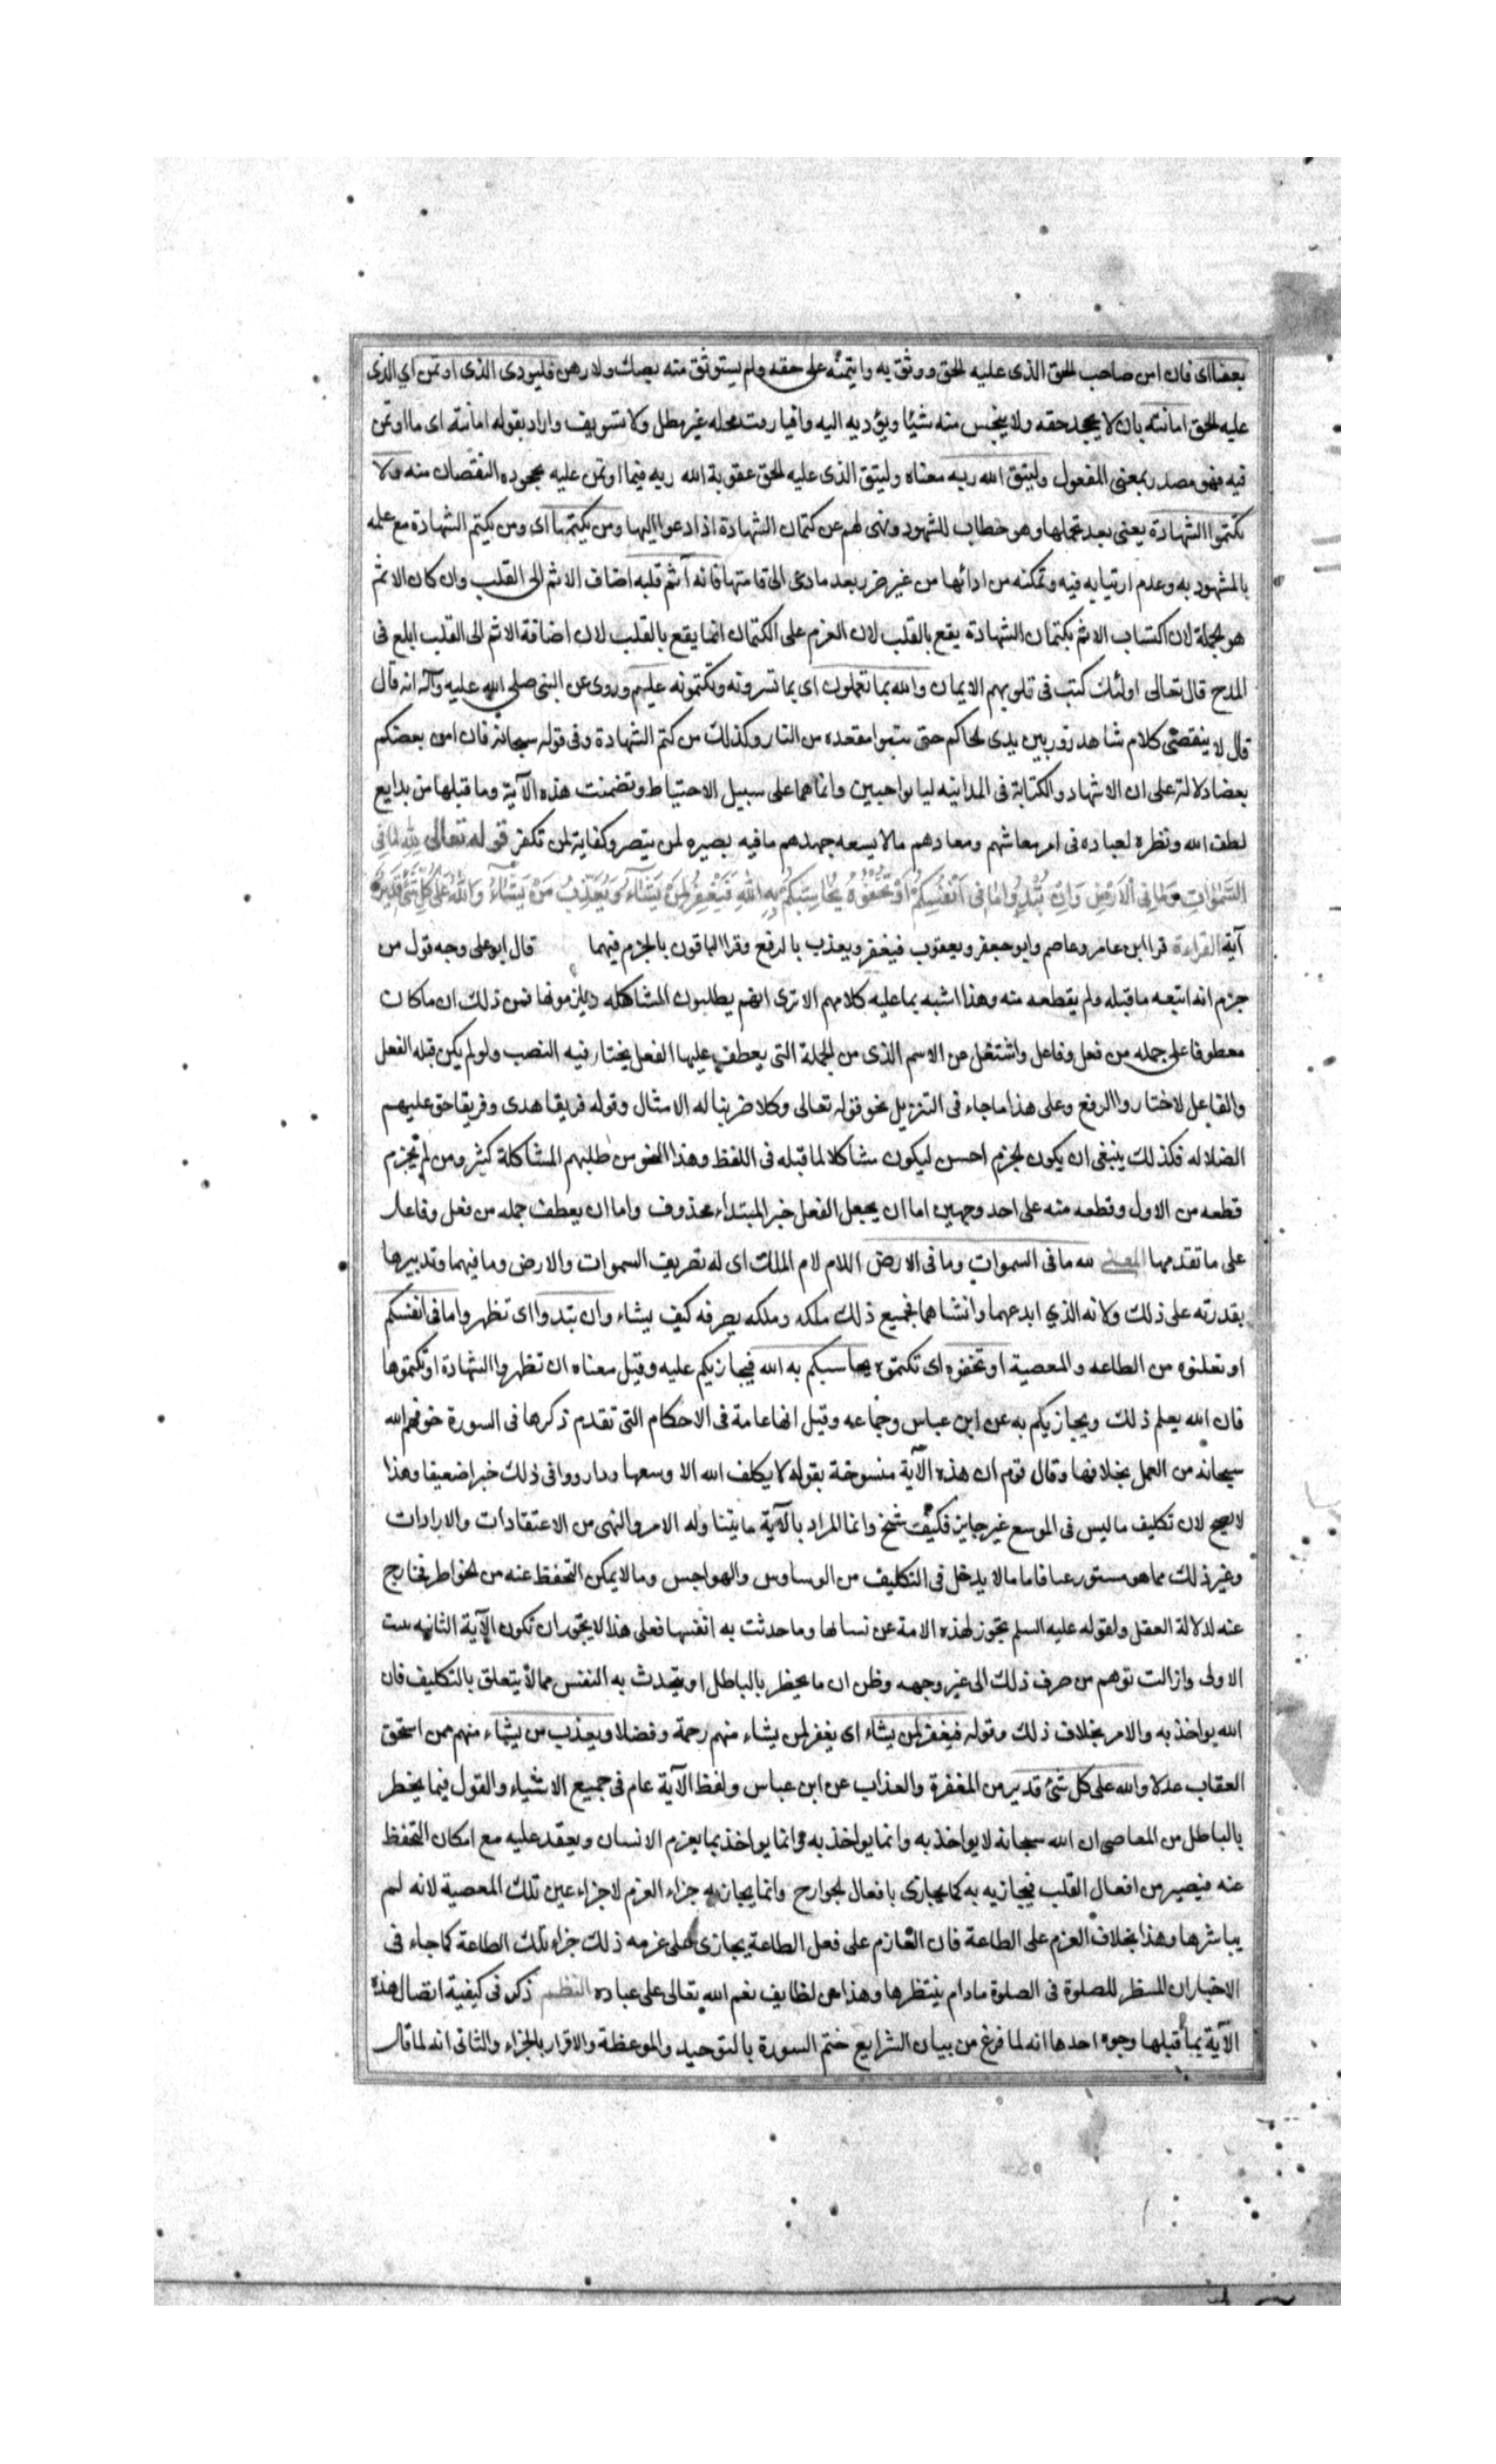 بعضا اى فان امن صاحب الحق الذى عليه الحق ووثق به وايتمنه على حقه ولم يستوثق منه بصك ولا رهن فليودى الذى اوتمن اي الذى
عليه الحق امانته بان لا يجحد حقه ولا يبخس منه شيئا ويؤديه اليه وافيا وقت محله غير مطل ولا تسويف واراد بقوله امانته اى ما اوتمن
فيه فهو مصدر بمعنى المفعول وليتق الله ربه معناه وليتق الذى عليه الحق عقوبة الله ربه فيما اوتمن عليه بجحوده النقصان منه ولا
تكتموا الشهادة يعنى بعد تحملها وهو خطاب للشهود ونهى لهم عن كتمان الشهادة اذا دعوا اليها ومن يكتمها اى ومن يكتم الشهادة مع علمه
بالمشهود به وعدم ارتيابه فيه وتمكنه من ادائها من غير ضرر بعد ما دعى الى اقامتها فانه آثم قلبه اضاف الاثم الى القلب وان كان الاثم
هو لجملة لان اكتساب الاثم بكتمان الشهادة يقع بالقلب لان العزم على الكتمان انما يقع بالقلب لان اضافة الاثم الى القلب ابلغ فى
المدح قال تعالى اولئك كتب فى قلوبهم الايمان والله بما تعملون اى بما تسرونه وتكتمونه عليم وروى عن النبى صلى الله عليه وآله انه قال
قال لا ينقضى كلام شاهد زور بين يدى الحاكم حتى يتبوا مقعده من النار وكذلك من كتم الشهادة وفى قوله سبحانه فان امن بعضكم
بعضا دلالة على ان الاشهاد والكتابة فى المداينه ليا بواجبين وانما هما على سبيل الاحتياط وتضمنت هذه الآية وما قبلها من بدايع
لطف الله ونظره لعباده فى امر معاشهم ومعادهم مالا يسعه جهدهم مافيه بصيره لمن يتبصر وكفاية لمن تكفر قوله تعالى لله ما فى
السموات وما فى الارض وان تبدوا ما فى انفسكم او تخفوه يحاسبكم به الله فيغفر لمن يشاء ويعذب من يشاء والله على كل شئ قدير
آية القراءة قرا ابن عامر وعاصم وابو جعفر ويعقوب فيغفر ويعذب بالرفع وقرا الباقون بالجزم فيهما قال ابو على وجه قول من
جزم انه اتبعه ما قبله ولم يقطعه منه وهذا اشبه بما عليه كلامهم الا ترى انهم يطلبون المشاكله ويلزمونها فمن ذلك ان ما كان
معطوفا على جمله من فعل وفاعل واشتغل عن الاسم الذى من الجملة التى يعطف عليها الفعل يختار فيه النصب ولو لم يكن قبله الفعل
والفاعل لاختاروا الرفع وعلى هذا ما جاء فى التنزيل نحو قوله تعالى وكلا ضربنا له الامثال وقوله فريقا هدى وفريقا حق عليهم
الضلاله فكذلك ينبغى ان يكون الجزم احسن ليكون مشاكلا لما قبله فى اللفظ وهذا النحو من طلبهم المشاكلة كثير ومن لم يجزم
قطعه من الاول وقطعه منه على احد وجهين اما ان يجعل الفعل خبر المبتداء محذوف واما ان يعطف جمله من فعل وفاعل
على ما تقدمها المعنى لله ما فى السموات وما فى الارض اللام لام الملك اى له تصريف السموات والارض وما فيهما وتدبيرها
بقدرته على ذلك ولانه الذي ابدعهما وانشاهما فجميع ذلك ملكه وملكه يصرفه كيف يشاء وان تبدوا اى تظهروا ما فى انفسكم
او تعلنوه من الطاعه والمعصية او تخفوه اى تكتموه يحاسبكم به الله فيجازيكم عليه وقيل معناه ان تظهروا الشهادة او تكتموها
فان الله يعلم ذلك ويجازيكم به عن ابن عباس وجماعه وقيل انها عامة فى الاحكام التى تقدم ذكرها فى السورة خوفهم الله
سبحانه من العمل بخلافها وقال قوم ان هذه الآية منسوخة بقوله لا يكلف الله الا وسعها ورووا فى ذلك خبرا ضعيفا وهذا
لا يصح لان تكليف ما ليس فى الوسع غير جايز فكيف ينسخ وانما المراد بالآية ما يتناوله الامر والنهى من الاعتقادات والارادات
وغير ذلك مما هو مستور عنا فاما مالا يدخل فى التكليف من الوساوس والهواجس ومالا يمكن التحفظ عنه من الخواطر فخارج
عنه لدلالة العقل ولقوله عليه السلم تجوز لهذه الامة عن نسيانها وما حدثت به انفسها فعلى هذا لا يجوز ان تكون الآية الثانيه بينت
الاولى وازالت توهم من صرف ذلك الى غير وجهه وظن ان ما يخطر بالباطل او يتحدث به النفس مما لا يتعلق بالتكليف فان
الله يواخذ به والامر بخلاف ذلك وقوله فيغفر لمن يشاء اى يغفر لمن يشاء منهم رحمة وفضلا ويعذب من يشاء منهم ممن استحق
العقاب عدلا والله على كل شئ قدير من المغفرة والعذاب عن ابن عباس ولفظ الآية عام فى جميع الاشياء والقول فيما يخطر
بالباطل من المعاصى ان الله سبحانه لا يواخذ به وانما يواخذ به وانما يواخذ بما يعزم الانسان ويعقد عليه مع امكان التحفظ
عنه فيصير من افعال القلب فيجازيه به كما يجازى بافعال الجوارح وانما يجازيه جزاء العزم لا جزاء عين تلك المعصية لانه لم
يباشرها وهذا بخلاف العزم على الطاعة فان العازم على فعل الطاعة يجازى على عزمه ذلك جزاء تلك الطاعة كما جاء فى
الاخبار ان المنتظر للصلوة فى الصلوة مادام ينتظرها وهذا من لطايف نعم الله تعالى على عباده النظم ذكر فى كيفية اتصال هذه
الآية بما قبلها وجوه احدها انه لما فرغ من بيان الشرايع ختم السورة بالتوحيد والموعظة والاقرار بالجزاء والثانى انه لما قال